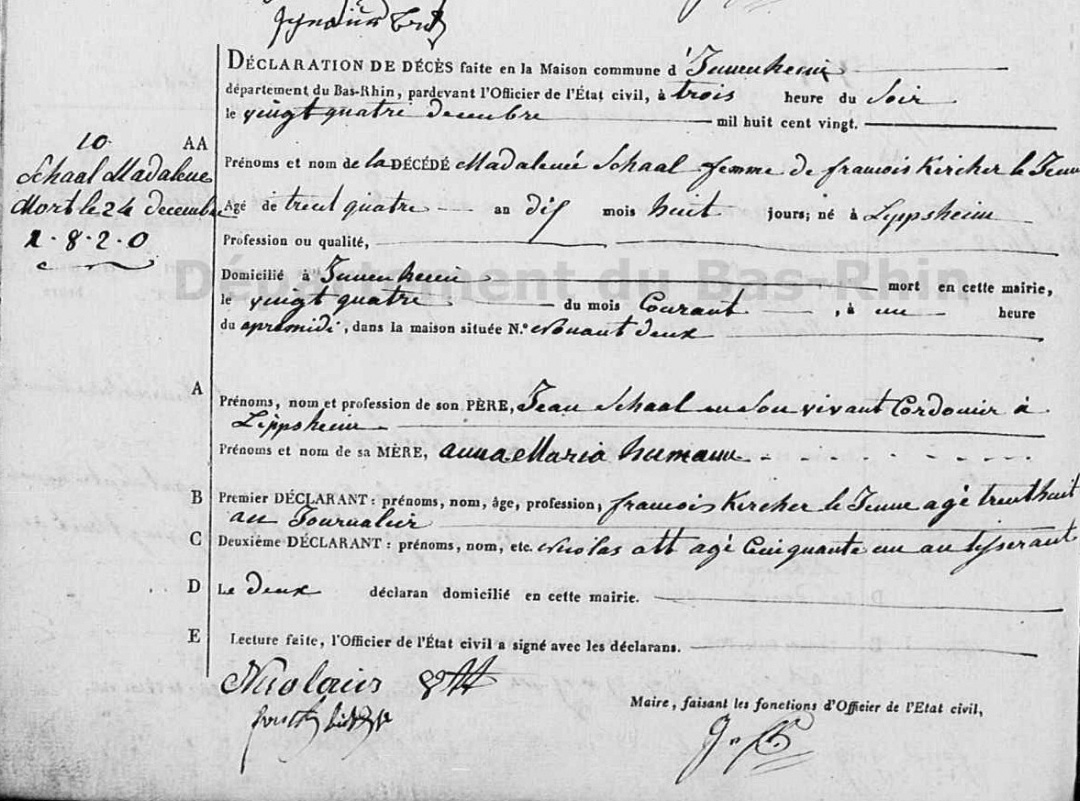 DÉCLARATION DE DÉCÈS faite en la Maison commune d'Innenheim
département du Bas-Rhin, pardevant l'Officier de l'État civil, à trois heure du Soir
le vingt quatre decembre mil huit cent vingt.
10 AA
Schaal Madalene
Mort le 24 decembre
1.8.2.0
Prénoms et nom de la DÉCÉDÉ Madalene Schaal femme de francois Kircher le Jeune
Agé de trent quatre an dix mois huit jours; né à Lippsheim
Profession ou qualité,
Département du Bas-Rhin
Domicilié à Innenheim mort en cette mairie,
le vingt quatre du mois Courant, à un heure
du apremidi, dans la maison située N.° Nonant deux
A
Prénoms, nom et profession de son PÈRE, Jean Schaal en son vivant Cordonier à
Lippsheim
Prénoms et nom de sa MÈRE, anna Maria humann
B Premier DÉCLARANT : prénoms, nom, âge, profession, francois Kircher le Jeune agé trenthuit
an Journalier
C Deuxième DÉCLARANT : prénoms, nom, etc. Nicolas ott agé Cinquante un an tisserant
D Le deux déclaran domicilié en cette mairie.
E Lecture faite, l'Officier de l'État civil a signé avec les déclarans.
Nicolaus Ott
Maire, faisant les fonctions d'Officier de l'Etat civil,